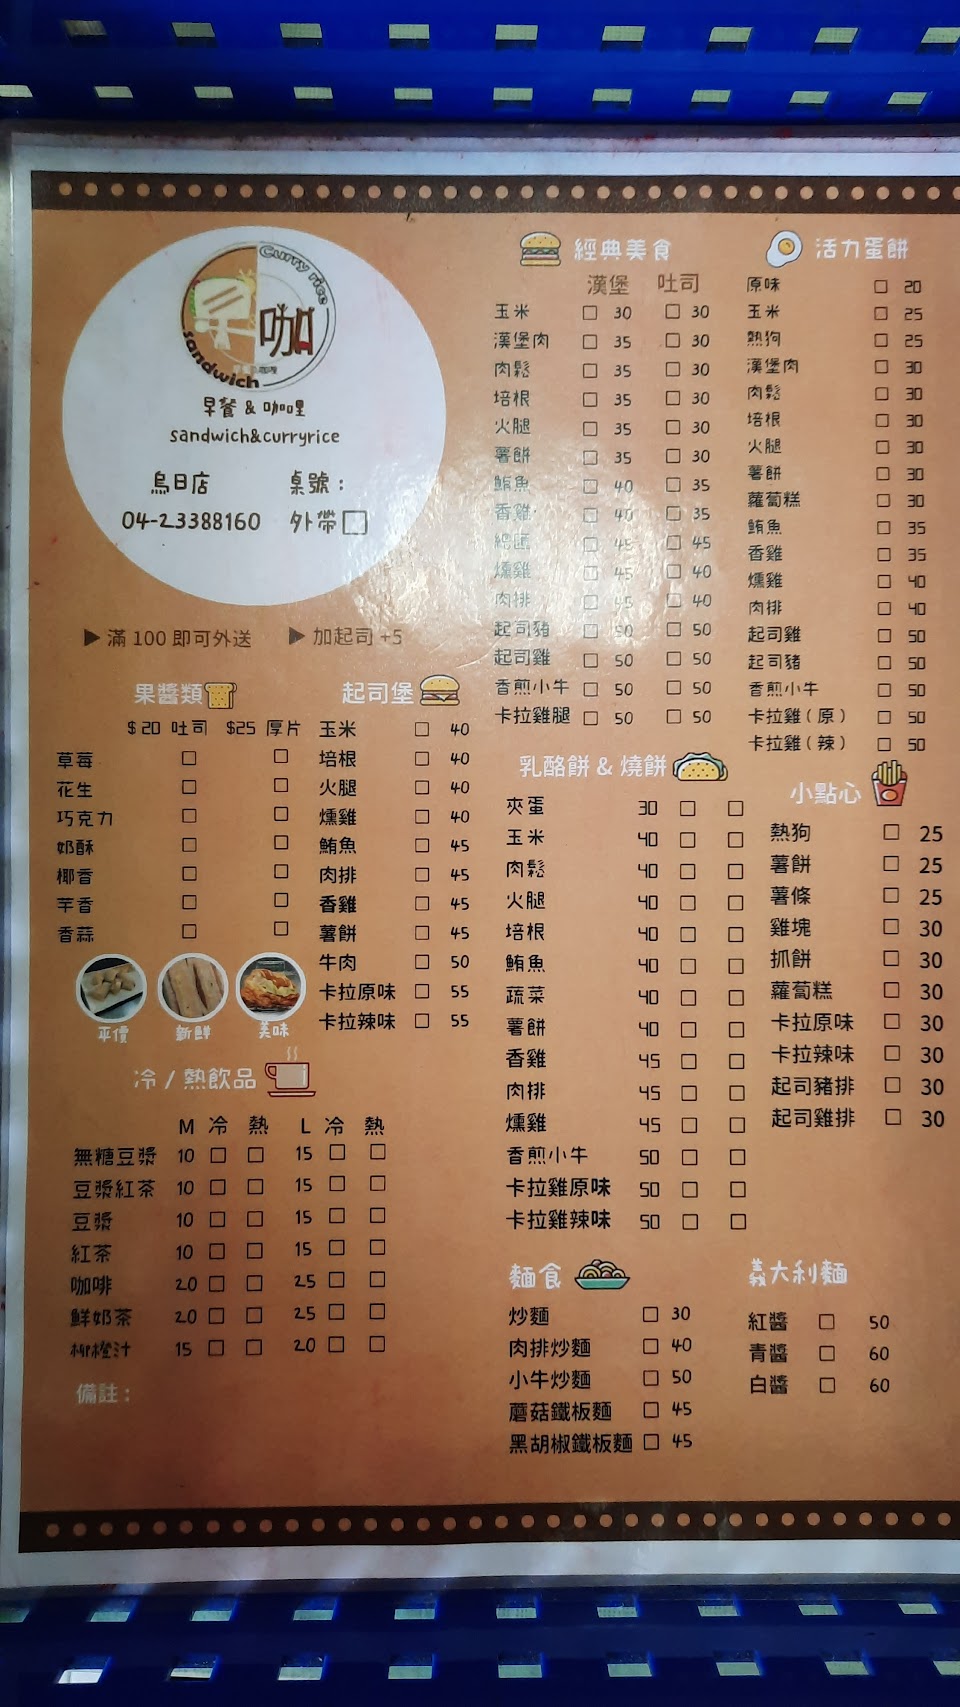 Curry rice
早咖
sandwich
早餐 & 咖哩
sandwich&curryrice
烏日店 桌號：
04-23388160 外帶□
▶滿 100 即可外送 ▶加起司 +5
果醬類
$20 吐司 $25 厚片
草莓 □ □
花生 □ □
巧克力 □ □
奶酥 □ □
椰香 □ □
芋香 □ □
香蒜 □ □
平價 新鮮 美味
起司堡
玉米 □ 40
培根 □ 40
火腿 □ 40
燻雞 □ 40
鮪魚 □ 45
肉排 □ 45
香雞 □ 45
薯餅 □ 45
牛肉 □ 50
卡拉原味 □ 55
卡拉辣味 □ 55
冷 / 熱飲品
M 冷 熱 L 冷 熱
無糖豆漿 10 □ □ 15 □ □
豆漿紅茶 10 □ □ 15 □ □
豆漿 10 □ □ 15 □ □
紅茶 10 □ □ 15 □ □
咖啡 20 □ □ 25 □ □
鮮奶茶 20 □ □ 25 □ □
柳橙汁 15 □ □ 20 □ □
備註：
經典美食
漢堡 吐司
玉米 □ 30 □ 30
漢堡肉 □ 35 □ 30
肉鬆 □ 35 □ 30
培根 □ 35 □ 30
火腿 □ 35 □ 30
薯餅 □ 35 □ 30
鮪魚 □ 40 □ 35
香雞 □ 40 □ 35
總匯 □ 45 □ 45
燻雞 □ 45 □ 40
肉排 □ 45 □ 40
起司豬 □ 50 □ 50
起司雞 □ 50 □ 50
香煎小牛 □ 50 □ 50
卡拉雞腿 □ 50 □ 50
活力蛋餅
原味 □ 20
玉米 □ 25
熱狗 □ 25
漢堡肉 □ 30
肉鬆 □ 30
培根 □ 30
火腿 □ 30
薯餅 □ 30
蘿蔔糕 □ 30
鮪魚 □ 35
香雞 □ 35
燻雞 □ 40
肉排 □ 40
起司雞 □ 50
起司豬 □ 50
香煎小牛 □ 50
卡拉雞（原） □ 50
卡拉雞（辣） □ 50
乳酪餅 & 燒餅
夾蛋 30 □ □
玉米 40 □ □
肉鬆 40 □ □
火腿 40 □ □
培根 40 □ □
鮪魚 40 □ □
蔬菜 40 □ □
薯餅 40 □ □
香雞 45 □ □
肉排 45 □ □
燻雞 45 □ □
香煎小牛 50 □ □
卡拉雞原味 50 □ □
卡拉雞辣味 50 □ □
小點心
熱狗 □ 25
薯餅 □ 25
薯條 □ 25
雞塊 □ 30
抓餅 □ 30
蘿蔔糕 □ 30
卡拉原味 □ 30
卡拉辣味 □ 30
起司豬排 □ 30
起司雞排 □ 30
麵食
炒麵 □ 30
肉排炒麵 □ 40
小牛炒麵 □ 50
蘑菇鐵板麵 □ 45
黑胡椒鐵板麵 □ 45
義大利麵
紅醬 □ 50
青醬 □ 60
白醬 □ 60